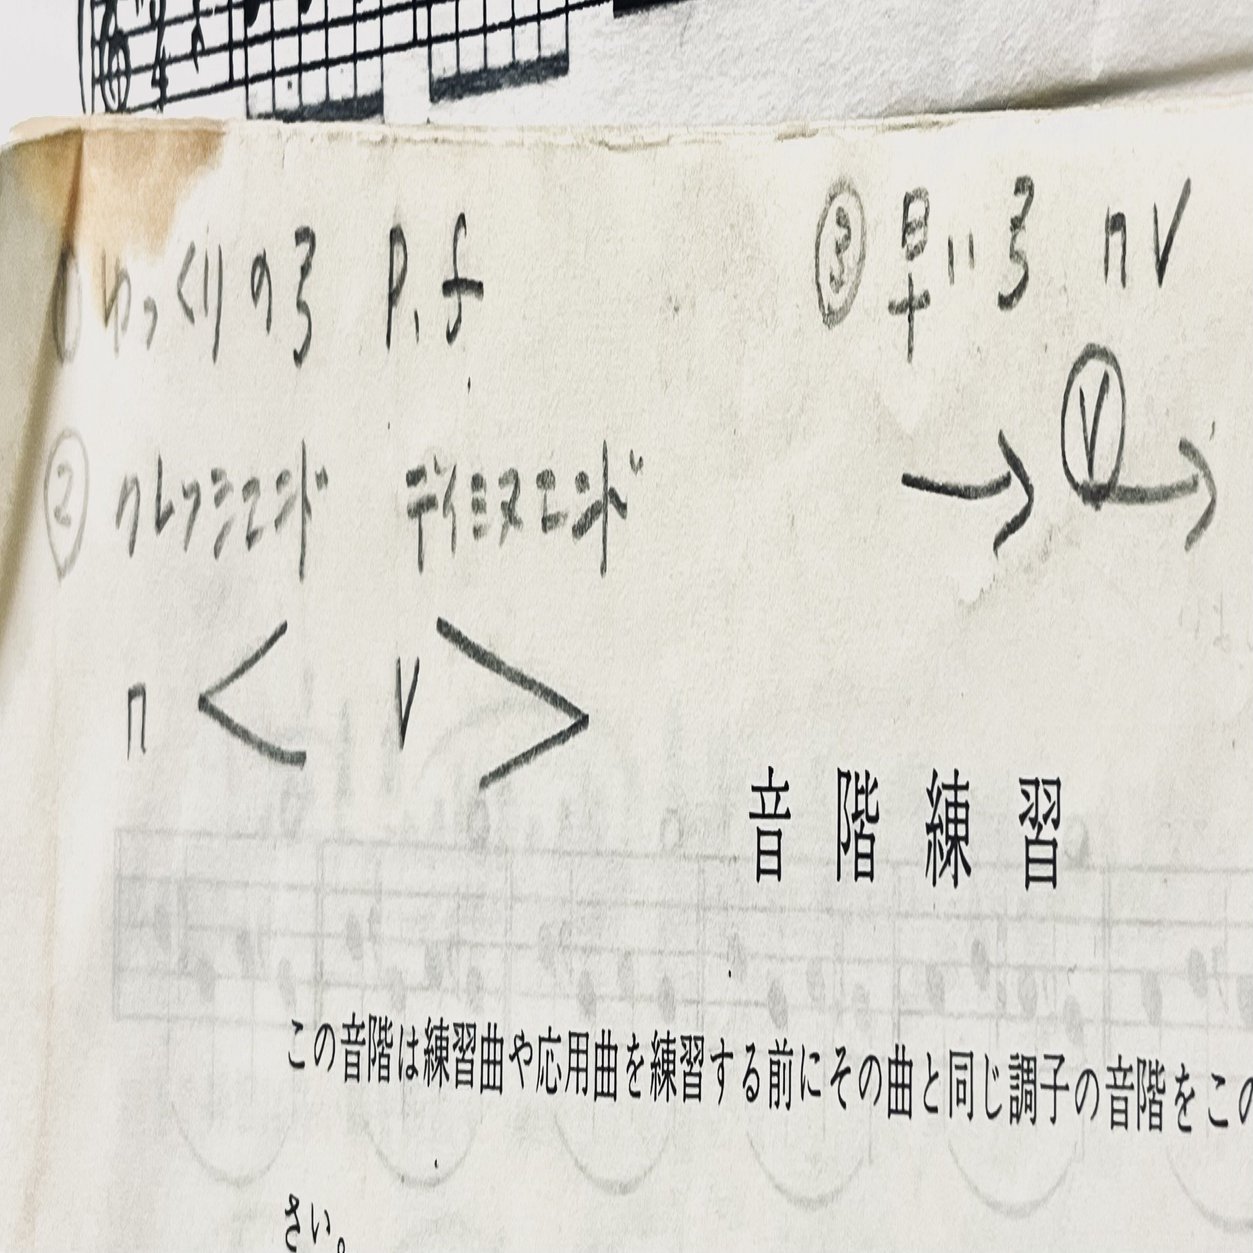 ① ゆっくりの弓 P. f
② クレッシェンド ディミヌエンド
n < V >
③ 早い弓 n V
→ Ⓥ→
音階練習
この音階は練習曲や応用曲を練習する前にその曲と同じ調子の音階をこの
さい。